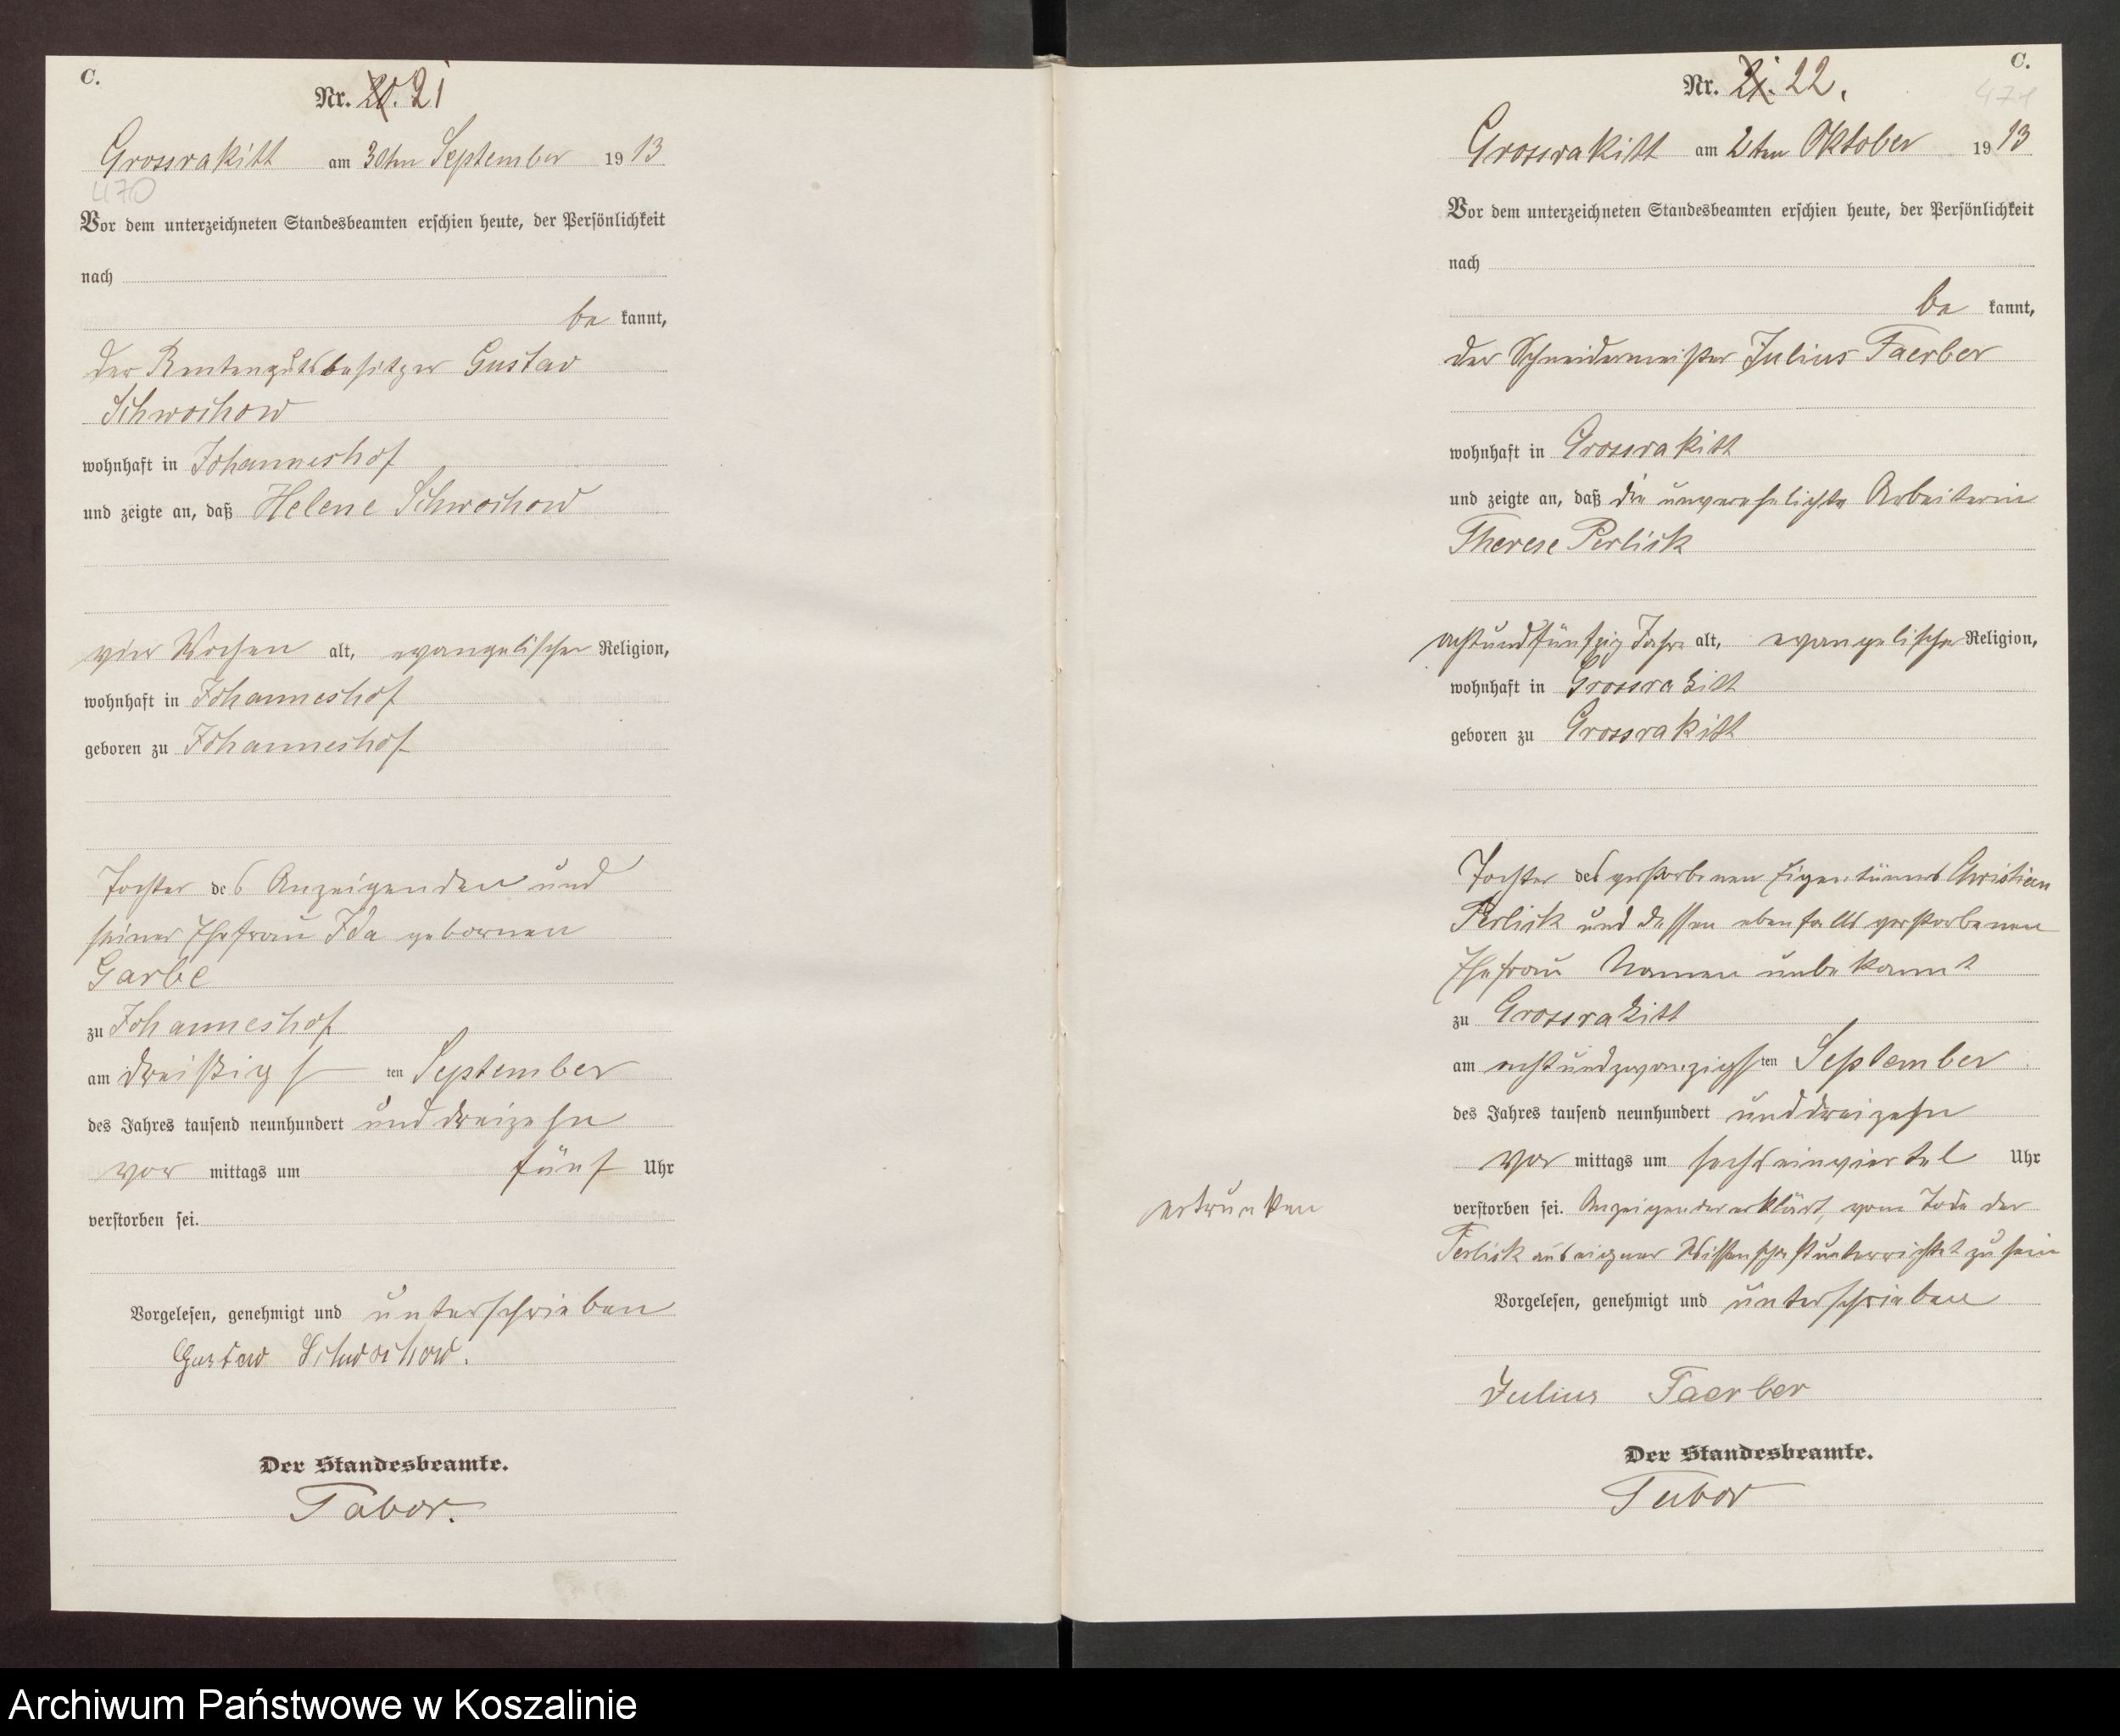 C.
Nr. 20. 21
Grossrakitt am 30ten September 1913
470
Vor dem unterzeichneten Standesbeamten erschien heute, der Persönlichkeit
nach
be kannt,
der Rentengutsbesitzer Gustav
Schwochow
wohnhaft in Johanneshof
und zeigte an, daß Helene Schwochow
vier Wochen alt, evangelischer Religion,
wohnhaft in Johanneshof
geboren zu Johanneshof
Tochter des Anzeigenden und
seiner Ehefrau Ida gebornen
Garbe
zu Johanneshof
am dreißigsten September
des Jahres tausend neunhundert und dreizehn
vor mittags um fünf Uhr
verstorben sei.
Vorgelesen, genehmigt und unterschrieben
Gustav Schwochow.
Der Standesbeamte.
Tabor.
C.
Nr. 21. 22.
471
Grossrakitt am 2ten Oktober 1913
Vor dem unterzeichneten Standesbeamten erschien heute, der Persönlichkeit
nach
be kannt,
der Schneidermeister Julius Faerber
wohnhaft in Grossrakitt
und zeigte an, daß die unverehelichte Arbeiterin
Therese Perlick
achtundfünfzig Jahre alt, evangelischer Religion,
wohnhaft in Grossrakitt
geboren zu Grossrakitt
Tochter des verstorbenen Eigentümers Christian
Perlick und dessen ebenfalls verstorbenen
Ehefrau Namen unbekannt
zu Grossrakitt
am achtundzwanzigsten September
des Jahres tausend neunhundert und dreizehn
Vor mittags um sechseinviertel Uhr
ertrunken
verstorben sei. Anzeigender erklärt, vom Tode der
Perlick aus eigner Wissenschaft unterrichtet zu sein
Vorgelesen, genehmigt und unterschrieben
Julius Faerber
Der Standesbeamte.
Tabor
Archiwum Państwowe w Koszalinie